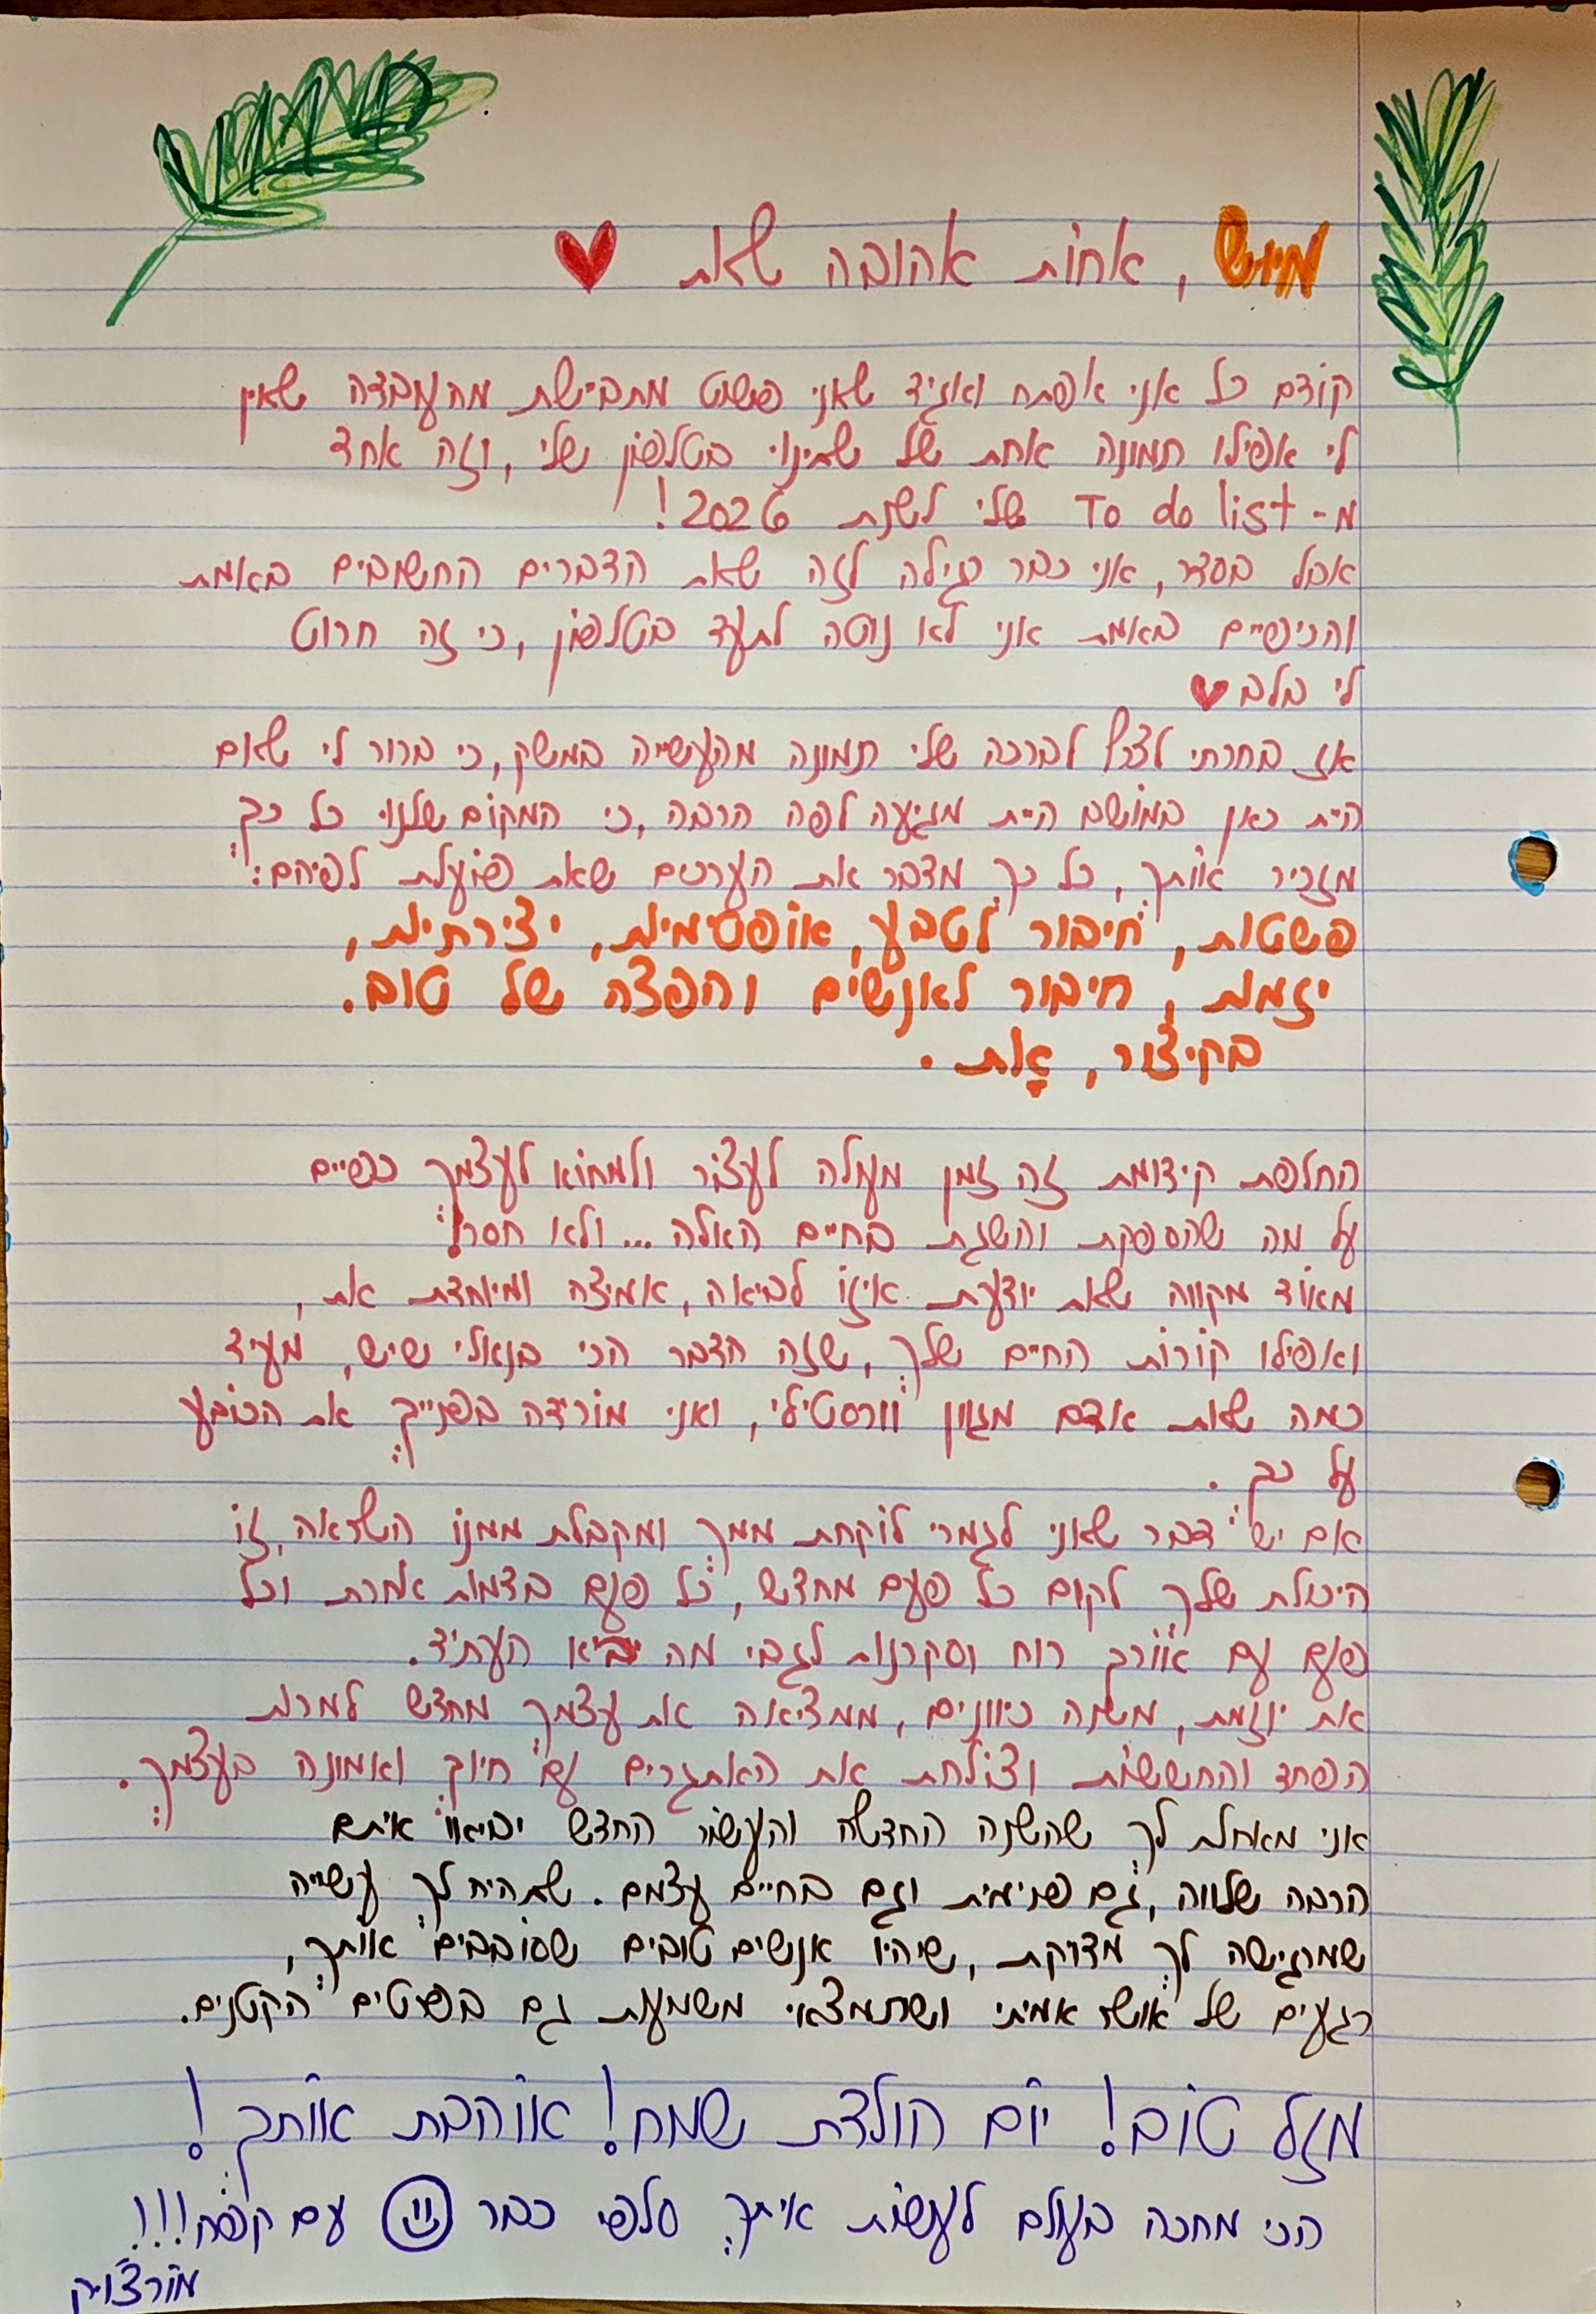 מיוש, אחות אהובה שאת
קודם כל אני אפתח ואגיד שאני פשוט מתביישת מהעובדה שאין
לי אפילו תמונה אחת של שתינו בטלפון שלי, וזה אחד
מ- To do list שלי לשנת 2026!
אבל בסדר, אני כבר רגילה לזה שאת הדברים החשובים באמת
והכיפיים באמת אני לא נוטה לתעד בטלפון, כי זה חרוט
לי בלב
אז בחרתי לצרף לברכה שלי תמונה מהעשייה במשק, כי ברור לי שאם
היית כאן במושב היית מגיעה לפה הרבה, כי המקום שלנו כל כך
מזכיר אותך, כל כך מדבר את הערכים שאת פועלת לפיהם:
פשטות, חיבור לטבע, אופטימיות, יצירתיות,
יזמות, חיבור לאנשים והפצה של טוב.
בקיצור, אַת.
החלפת קידומת זה זמן מעולה לעצור ולמחוא לעצמך כפיים
על מה שהספקת והשגת בחיים האלה... ולא חסר!
מאוד מקווה שאת יודעת איזו לביאה, אמיצה ומיוחדת את,
ואפילו קורות החיים שלך, שזה הדבר הכי בנאלי שיש, מעיד
כמה שאת אדם מגוון וורסטילי, ואני מורידה בפנייך את הכובע
על כך.
אם יש דבר שאני לגמרי לוקחת ממך ומקבלת ממנו השראה, זו
היכולת שלך לקום כל פעם מחדש, כל פעם בדמות אחרת וכל
פעם עם אורך רוח וסקרנות לגבי מה יביא העתיד.
את יוזמת, משנה כיוונים, ממציאה את עצמך מחדש למרות
הפחד והחששות וצולחת את האתגרים עם חיוך ואמונה בעצמך.
אני מאחלת לך שהשנה החדשה והעשור החדש יביאו איתם
הרבה שלווה, גם פנימית וגם בחיים עצמם. שתהיה לך עשייה
שמרגישה לך מדויקת, שיהיו אנשים טובים שסובבים אותך,
רגעים של אושר אמיתי ושתמצאי משמעות גם בפרטים הקטנים.
מזל טוב! יום הולדת שמח! אוהבת אותך!
הכי מחכה בעולם לעשות איתך סלפי כבר עם קפה!!!
מורצ'ויק